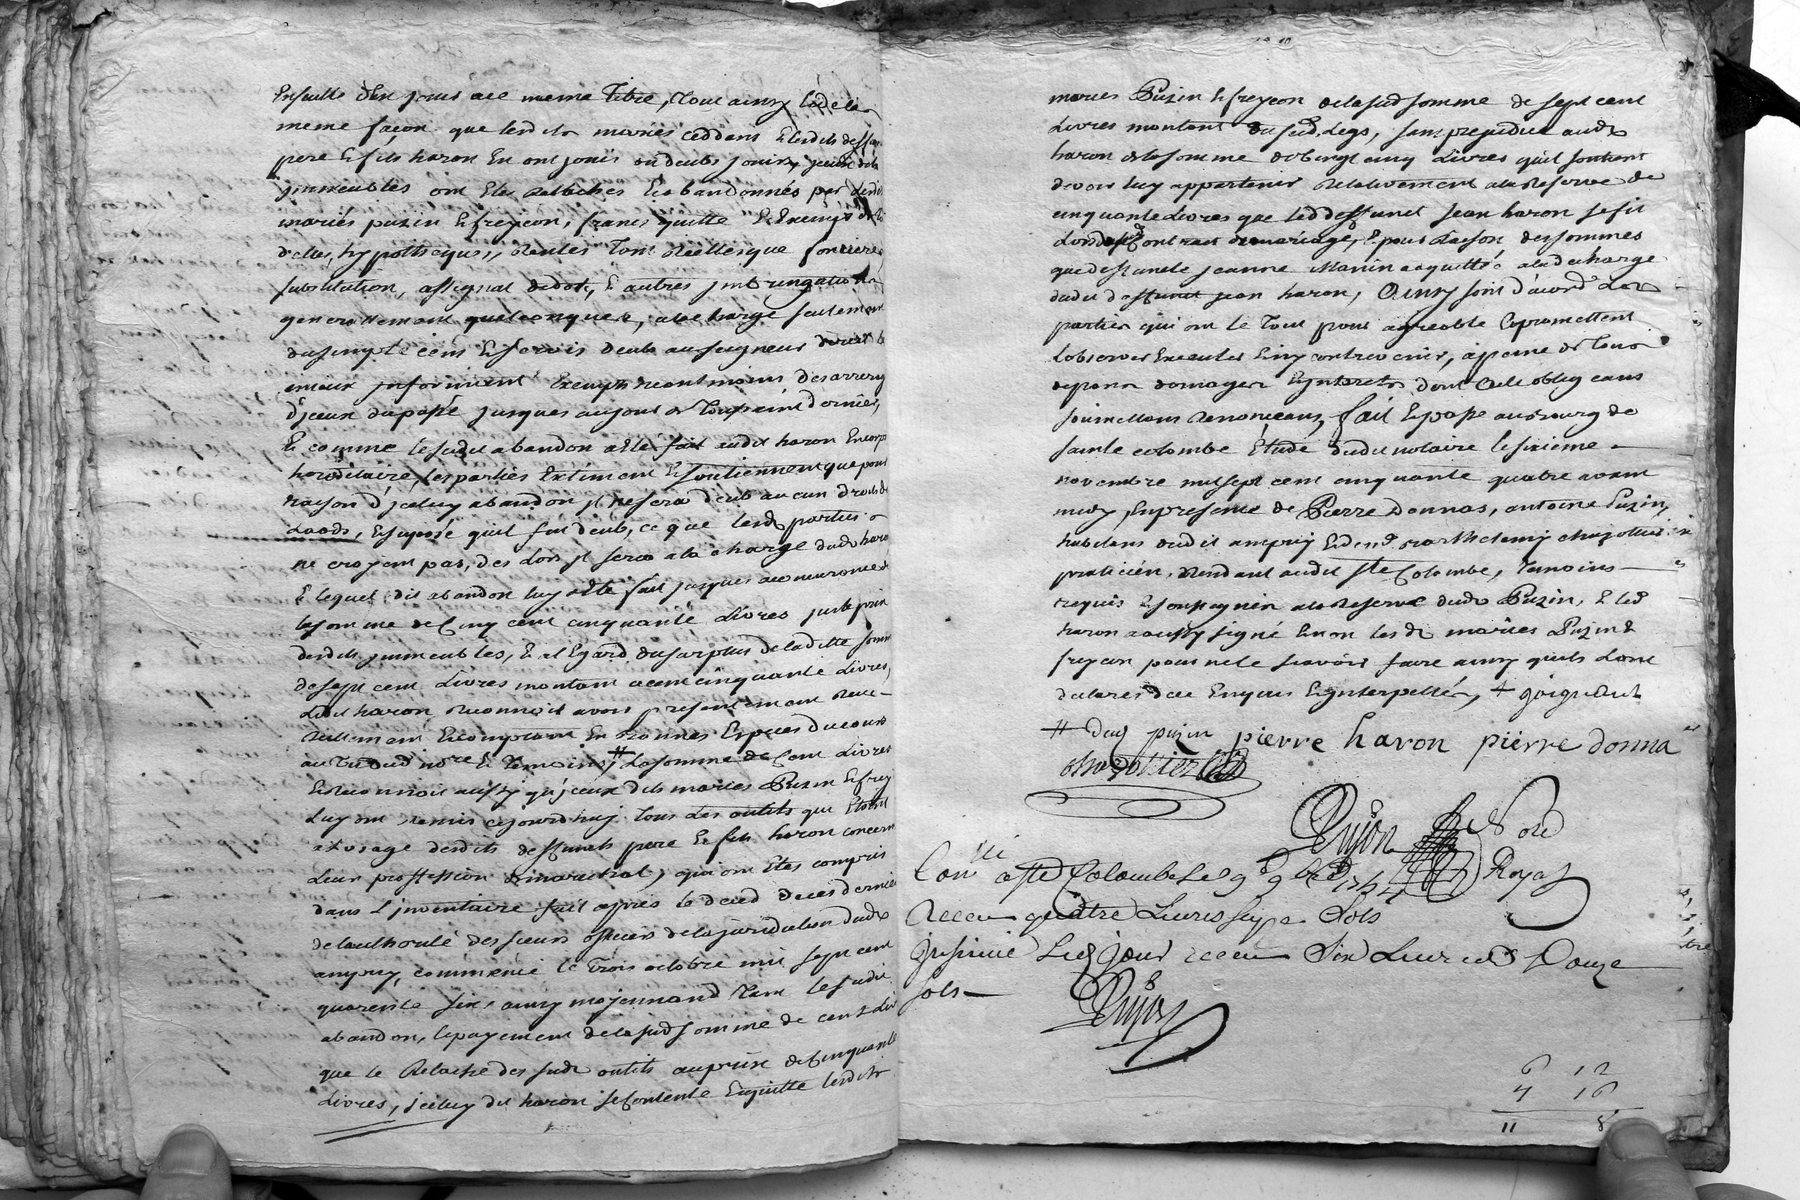 Ensuitte d'En jouir au meme Titre, Tout ainsy & de la
meme façon que lesdits mariés ceddans & lesdits deffun
pere & fils haron En ont jouis ou deubs jouir,
jmmeubles ont Etes Relachés & abandonnés par lesd
mariés puzin & freycon, francs quitte & Exempts de
dettes, hypotheques, Rentes Tant Réelles que foncieres,
substitution, assignat de dot, & autres
generallement quelconques, a la charge seulement
du simple cens & servis deub au seigneur
Exempts neantmoins d'arrerag
d'jceux du passé jusques au jour de Toussaint dernier,
Et comme le susdit abandon a eté fait audit haron En corps
hereditaire, les parties Extiment & soutiennent que pour
raison d'jceluy abandon jl ne sera deub aucun droits de
Laods, & suposé qu'il fut deub, ce que lesd parties
ne croyent pas, des Lors jl sera a la charge dud haro
Et lequel dit abandon luy a eté fait jusques a concurrence de
la somme de Cinq cent cinquante Livres juste prix
desdits jmmeubles, & a l'Egard du surplus de la ditte somme
de sept cent Livres montant a cent cinquante Livres,
Ledit haron Reconnoit avoir presentement Reçu
Reellement & comptant En bonnes Especes du cours
au veu dud no.re & Temoins, # La somme de Cent Livres
Et Reconnoit aussy qu'jceux dits mariés Puzin & frey
Luy ont remis cejourd'huy Tous Les outils qui Etoient
a l'usage desdits deffunts pere & fils haron concern
Leur proffession de marechal, qui ont Etes compris
dans L'jnventaire fait apres le deced de ces dernie
de l'authorité des sieurs officiers de la juridiction dud
ampuy, commencé le Trois octobre mil sept cent
quarente six, ainsy moyennand Tant le susdit
abandon, le payement de la sud somme de cent Liv
que le Relaché des sud outils au prix de Cinquante
Livres, jceluy dit haron se Contente & quitte lesdits
mariés Puzin & freycon de la sud somme de sept cent
Livres montant du sud. Legs, sans prejudice aud
haron de la somme de Vingt cinq Livres qu'il soutient
devoir luy appartenir Relativement a la Reserve de
cinquante Livres que led deffunct jean haron se fit
Lors de son Contract de mariage, & pour Raison des sommes
que deffuncte jeanne Manin acquitté a la decharge
dudit deffunct jean haron, Ainsy sont d'acord Les
parties qui ont Le Tout pour agreable & promettent
L'observer Executer & n'y contrevenir, a peine de Tous
depens domages & jnterets dont Acte obligeans
soumettans Renonceans, fait & passé au bourg de
sainte colombe Etude dudit notaire le sixieme
novembre mil sept cent cinquante quatre avant
midy, En presence de Pierre Donnas, antoine Puzin,
habitans dudit ampuy & de s.r Barthelemy chazottier
praticien, Residant audit ste Colombe, Temoins
requis & soussignés a la Reserve dud Puzin, & led
haron a aussy signé & non lesd mariés Puzin &
freycon pour ne le scavoir faire ainsy qu'ils L'ont
declaré de ce Enquis & jnterpellés, +
# Dud puzin pierre haron pierre donna
chazottier
Dujon Nore
Royal
Con.lle a Ste Colombe Le 9.e 9bre 1754
Receu quatre Livres seize Sols
jnsinué Led jour receu Six Livres Douze
sols
Dujon
6 12
4 16
11 8